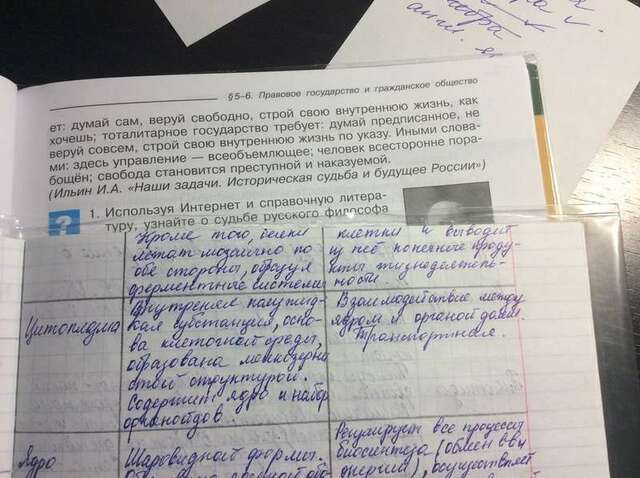 § 5–6. Правовое государство и гражданское общество
ет: думай сам, веруй свободно, строй свою внутреннюю жизнь, как
хочешь; тоталитарное государство требует: думай предписанное, не
веруй совсем, строй свою внутреннюю жизнь по указу. Иными слова-
ми: здесь управление — всеобъемлющее; человек всесторонне пора-
бощён; свобода становится преступной и наказуемой.
(Ильин И.А. «Наши задачи. Историческая судьба и будущее России»)
?
1. Используя Интернет и справочную литера-
туру, узнайте о судьбе русского философа
Кроме того, белки
лежат мозаично по
обе стороны, образуя
ферментные системы
клетки и выводит
из неё конечные проду-
кты жизнедеятель-
ности.
Цитоплазма
Внутренняя полужид-
кая субстанция, осно-
ва клеточной среды,
образована мелкозерни
стой структурой.
Содержит ядро и набор
органойдов.
Взаимодействие между
ядром и органойдами.
Транспортная.
Ядро
Шаровидной формы.
Регулируют все процессы
биосинтеза (обмен в-в и
энергии), осуществляет